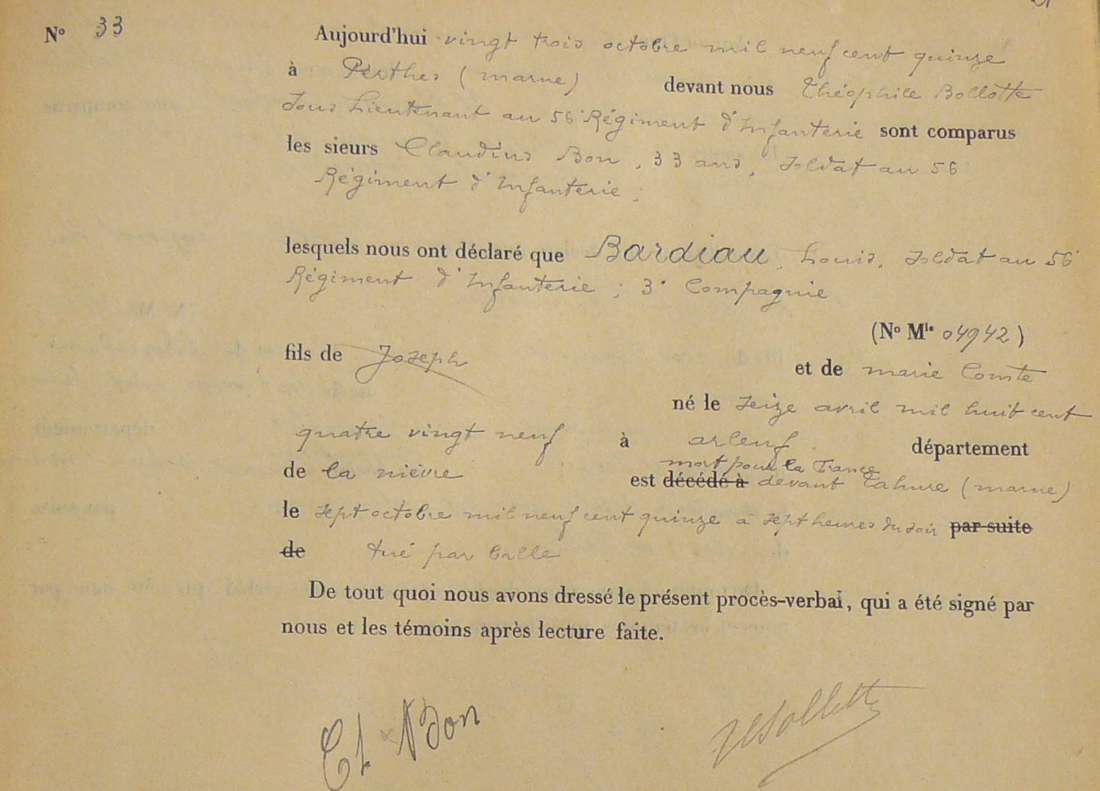 N° 33
Aujourd'hui vingt trois octobre mil neuf cent quinze
à Perthes (marne) devant nous Théophile Bollotte
Sous Lieutenant au 56 Régiment d'Infanterie sont comparus
les sieurs Claudius Bon, 33 ans, Soldat au 56
Régiment d'Infanterie;
lesquels nous ont déclaré que Bardiau, Louis, Soldat au 56
Régiment d'Infanterie; 3e Compagnie
(N° Mle 04942)
fils de Joseph et de marie Comte
né le Seize avril mil huit cent
quatre vingt neuf à arleuf département
mort pour la France
de la nièvre est décédé à devant Tahure (marne)
le sept octobre mil neuf cent quinze à sept heures du soir par suite
de tué par balle
De tout quoi nous avons dressé le présent procès-verbal, qui a été signé par
nous et les témoins après lecture faite.
Cl Bon